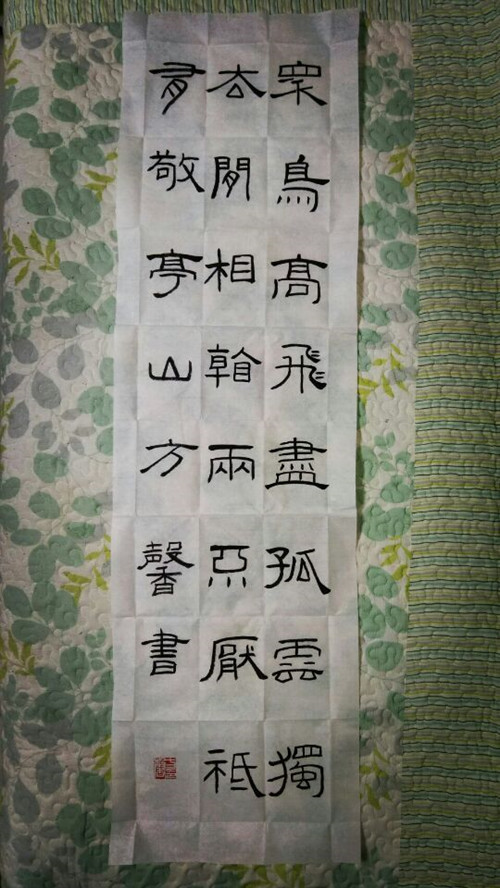 眾鳥高飛盡孤雲獨
去閒相看兩不厭祗
有敬亭山方馨書